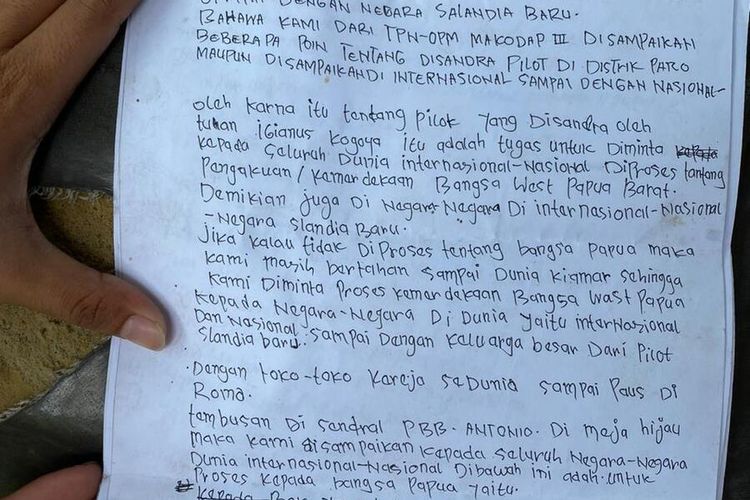 DENGAN NEGARA SALANDIA BARU.
BAHAWA KAMI DARI TPN-OPM MAKODAP III DISAMPAIKAN
BEBERAPA POIN TENTANG DISANDRA PILOT DI DISTRIK PARO
MAUPUN DISAMPAIKANDI INTERNASIONAL SAMPAI DENGAN NASIONAL-
oleh karna itu tentang pilok yang Disandra oleh
tuhan igianus kogoya itu adalah tugas untuk Diminta
kepada seluruh Dunia internasional-Nasional Diproses tantang
Pengakuan/kamardekaan Bangsa West Papua Barat.
Demikian juga Di Negara-Negara Di internasional-Nasional
-Negara slandia Baru.
Jika kalau tidak Diproses tentang bangsa papua maka
kami masih bartahan sampai Dunia kiamar sehingga
kami Diminta Proses kemardekaan Bangsa Wast Papua
kepada Negara-Negara Di Dunia yaitu internasional
Dan Nasional slandia baru. sampai Dengan keluarga besar Dari Pilot
. Dengan toko-toko Kareja seDunia sampai Paus Di
Roma.
tambusan Di sandral PBB. ANTONIO. Di meja hijau
maka kami disampaikan kepada seluruh Negara-Negara
Dunia internasional-Nasional Dibawah ini adah untuk
Proses kepada bangsa Papua yaitu.
kepada